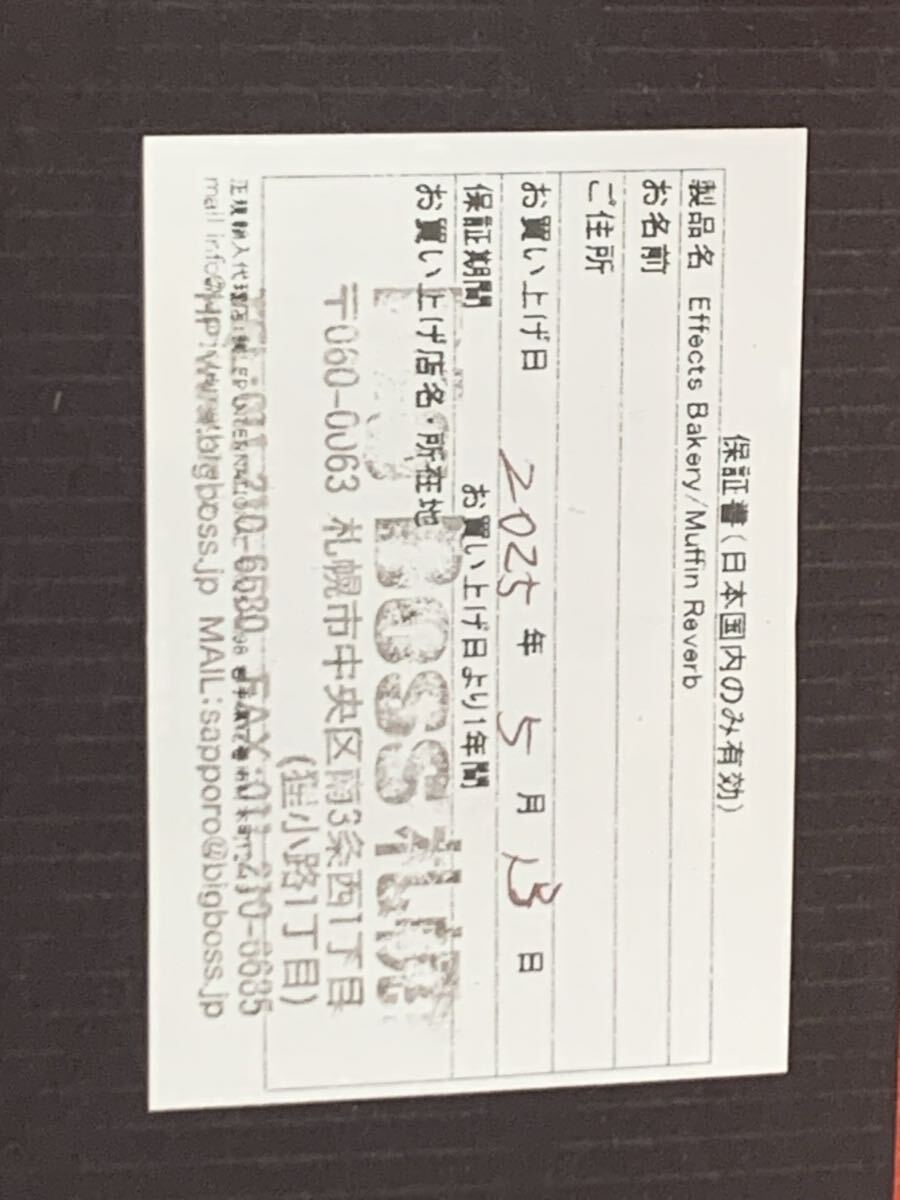 保証書(日本国内のみ有効)
製品名 Effects Bakery/Muffin Reverb
お名前
ご住所
お買い上げ日 2025 年 5 月 13 日
保証期間 お買い上げ日より1年間
お買い上げ店名・所在地
BOSS 札幌
〒060-0063 札幌市中央区南3条西1丁目
(狸小路1丁目)
正規輸入代理店
FAX:011-210-6685
mail info@
HP:www.bigboss.jp MAIL:sapporo@bigboss.jp